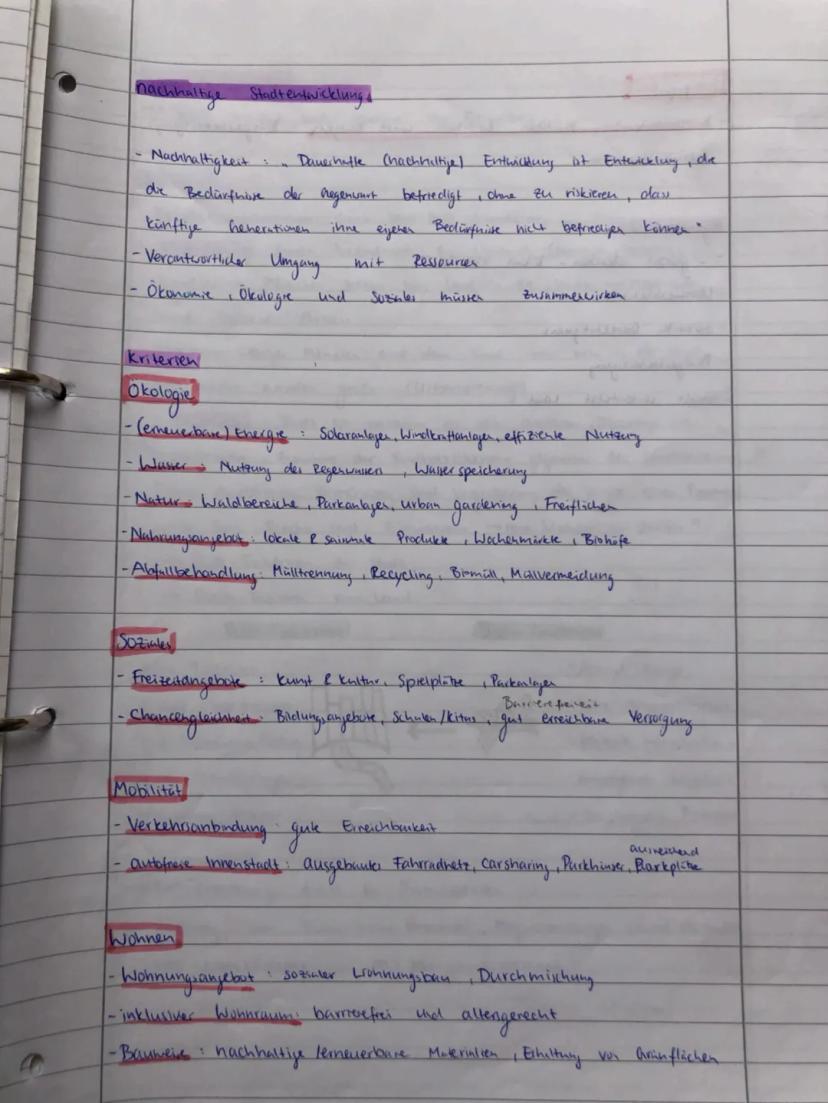 nachhaltige Stadtentwicklung
- Nachhaltigkeit : „ Dauerhafte (nachhaltige) Entwicklung ist Entwicklung , die
die Bedürfnisse der Gegenwart befriedigt , ohne zu riskieren , dass
künftige Generationen ihre eigenen Bedürfnisse nicht befriedigen können "
- Verantwortlicher Umgang mit Ressourcen
- Ökonomie , Ökologie und Soziales müssen zusammenwirken
Kriterien
Ökologie
- (erneuerbare) Energie : Solaranlagen, Windkraftanlagen, effiziente Nutzung
- Wasser : Nutzung des Regenwassers , Wasserspeicherung
- Natur : Waldbereiche , Parkanlagen, urban gardening , Freiflächen
- Nahrungsangebot : lokale & saisonale Produkte , Wochenmärkte , Biohöfe
- Abfallbehandlung : Mülltrennung , Recycling, Biomüll, Müllvermeidung
Soziales
- Freizeitangebote : Kunst & Kultur, Spielplätze , Parkanlagen
Barrierefreiheit
- Chancengleichheit : Bildungsangebote, Schulen/Kitas , gut erreichbare Versorgung
Mobilität
- Verkehrsanbindung : gute Erreichbarkeit
ausreichend
- autofreie Innenstadt : ausgebautes Fahrradnetz, Carsharing , Parkhäuser, Parkplätze
Wohnen
- Wohnungsangebot : sozialer Wohnungsbau , Durchmischung
- inklusiver Wohnraum : barrierefrei und altengerecht
- Bauweise : nachhaltige /erneuerbare Materialien , Erhaltung von Grünflächen